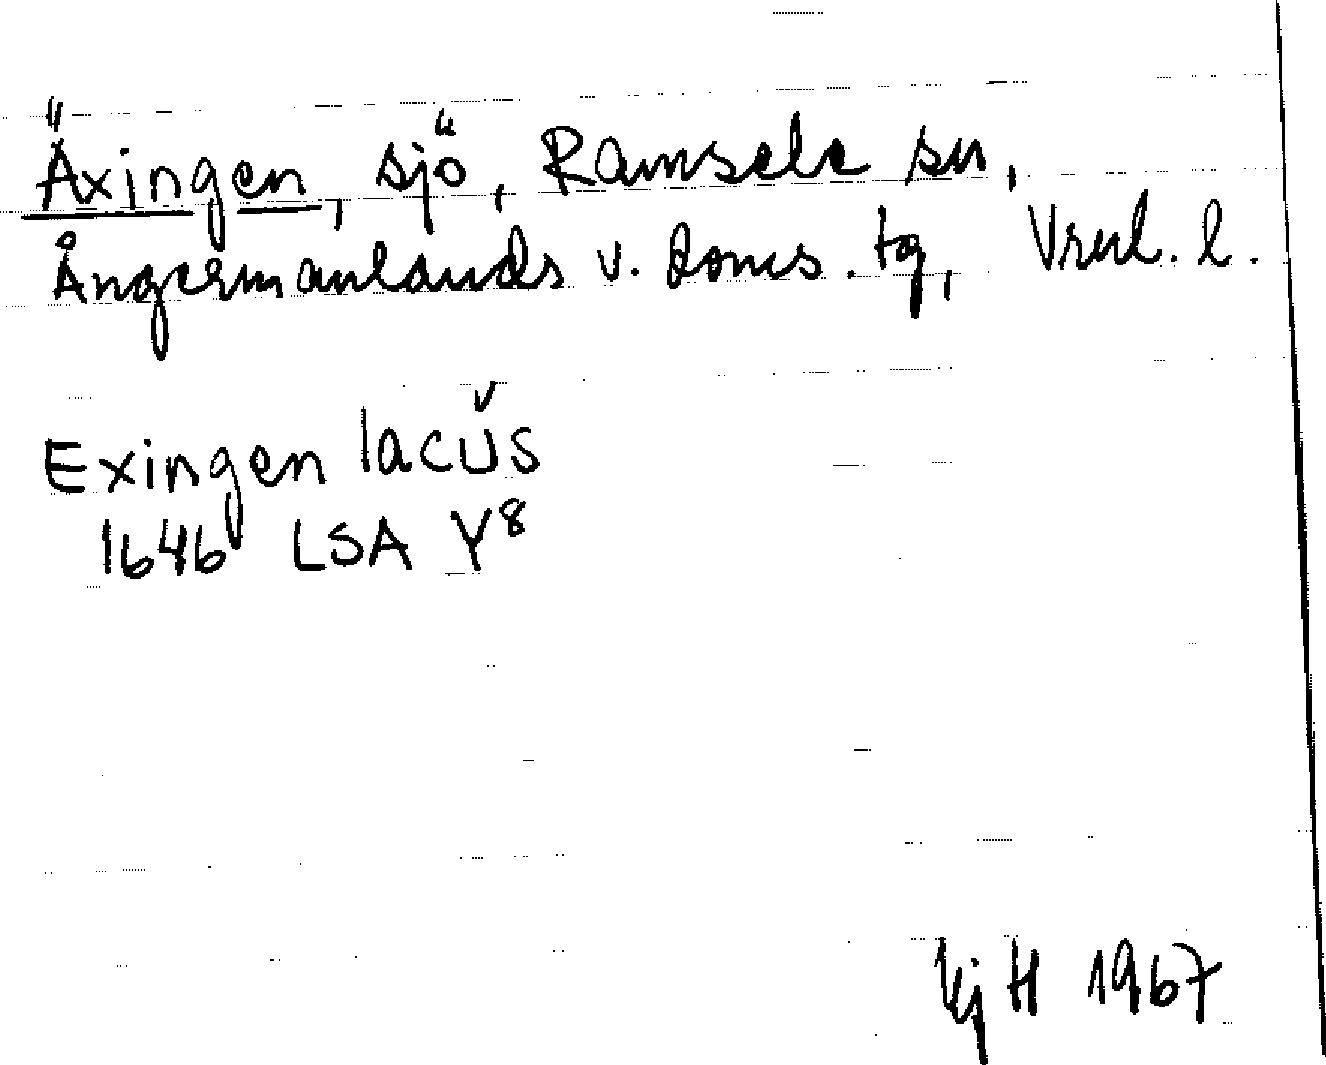 Äxingen, sjö, Ramsele sn,
Ångermanlands v. doms. tg, Vrnl. l.
Exingen lacŭs
1646 LSA Y8
Kj H 1967